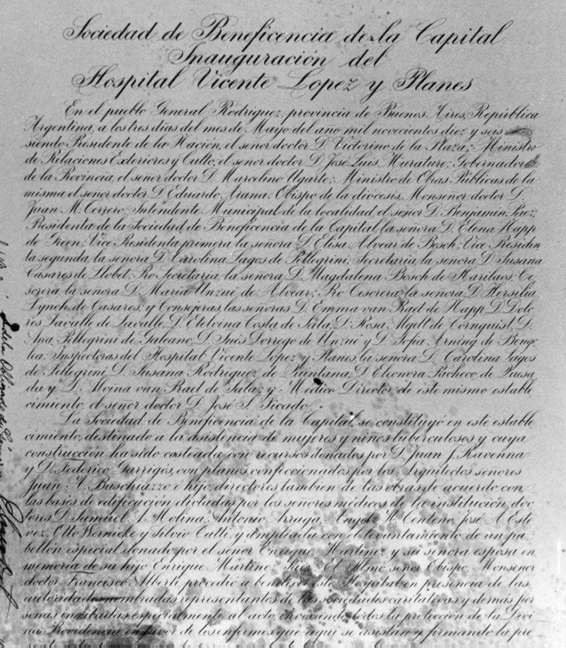 Sociedad de Beneficencia de la Capital
Inauguración del
Hospital Vicente Lopez y Planes
En el pueblo General Rodriguez, provincia de Buenos Aires, República
Argentina, a los tres días del mes de Mayo del año mil novecientos diez y seis
siendo Presidente de la Nación, el señor doctor D. Victorino de la Plaza; Ministro
de Relaciones Exteriores y Culto, el señor doctor D. José Luis Murature; Gobernador
de la Provincia, el señor doctor D. Marcelino Ugarte; Ministro de Obras Públicas de la
misma el señor doctor D. Eduardo Arana; Obispo de la diócesis, Monseñor doctor D.
Juan N. Terrero; Intendente Municipal de la localidad el señor D. Benjamin
Presidenta de la Sociedad de Beneficencia de la Capital, la señora D. Elena Napp
de Green, Vice Presidenta primera la señora D. Elisa Alvear de Bosch, Vice Presiden
ta segunda, la señora D. Carolina Lagos de Pellegrini, Secretaria la señora D. Susana
Casares de Llobet. Pro Secretaria, la señora D. Magdalena Bosch de Harilaos, Te
sorera la señora D. Maria Unzué de Alvear; Pro Tesorera la señora D. Hersilia
Lynch de Casares, y Consejeras las señoras D. Emma van Prael de Napp, D. Dolo
res Lavalle de Lavalle, D. Etelvina Costa de Sala, D. Rosa de D.
Ana Pellegrini de Galeano, D. Inés Dorrego de Unzué y D. Sofia Arning de Benge
lea, Inspectoras del Hospital Vicente Lopez y Planes la señora D. Carolina Lagos
de Pellegrini D. Susana Rodriguez de Quintana, D. Eleonora Pacheco de
da y D. van Prael de y Médico Director de este mismo estable
cimiento, el señor doctor D. José
La Sociedad de Beneficencia de la Capital, se constituyó en este estable
cimiento, destinado a la asistencia de mujeres y niños tuberculosos y cuya
construcción ha sido costeada con recursos donados por D. Juan J. Ravenna
y D. Federico Garrigós, con planos confeccionados por los Arquitectos señores
Juan A. Buschiazzo e hijo, directores tambien de las obras de acuerdo con
las bases de edificación dictadas por los señores médicos de la institución, doc
tores D. Samuel Molina, Antonio Centeno, José A. Este
vez, Otto Wernicke y Silvio y ampliada con el levantamiento de un pa
bellon especial donado por el señor Enrique Martinez y su señora esposa en
memoria de su hijo Enrique Martino El señor Obispo Monseñor
doctor Francisco Alberti procedió a bendecir este Hospital en presencia de las
autoridades nombradas, representantes de las sociedades caritativas y demás per
sonas al acto, invocando todos la protección de la Divi
na Providencia en favor de los enfermos que aqui se asistan y firmando la pre